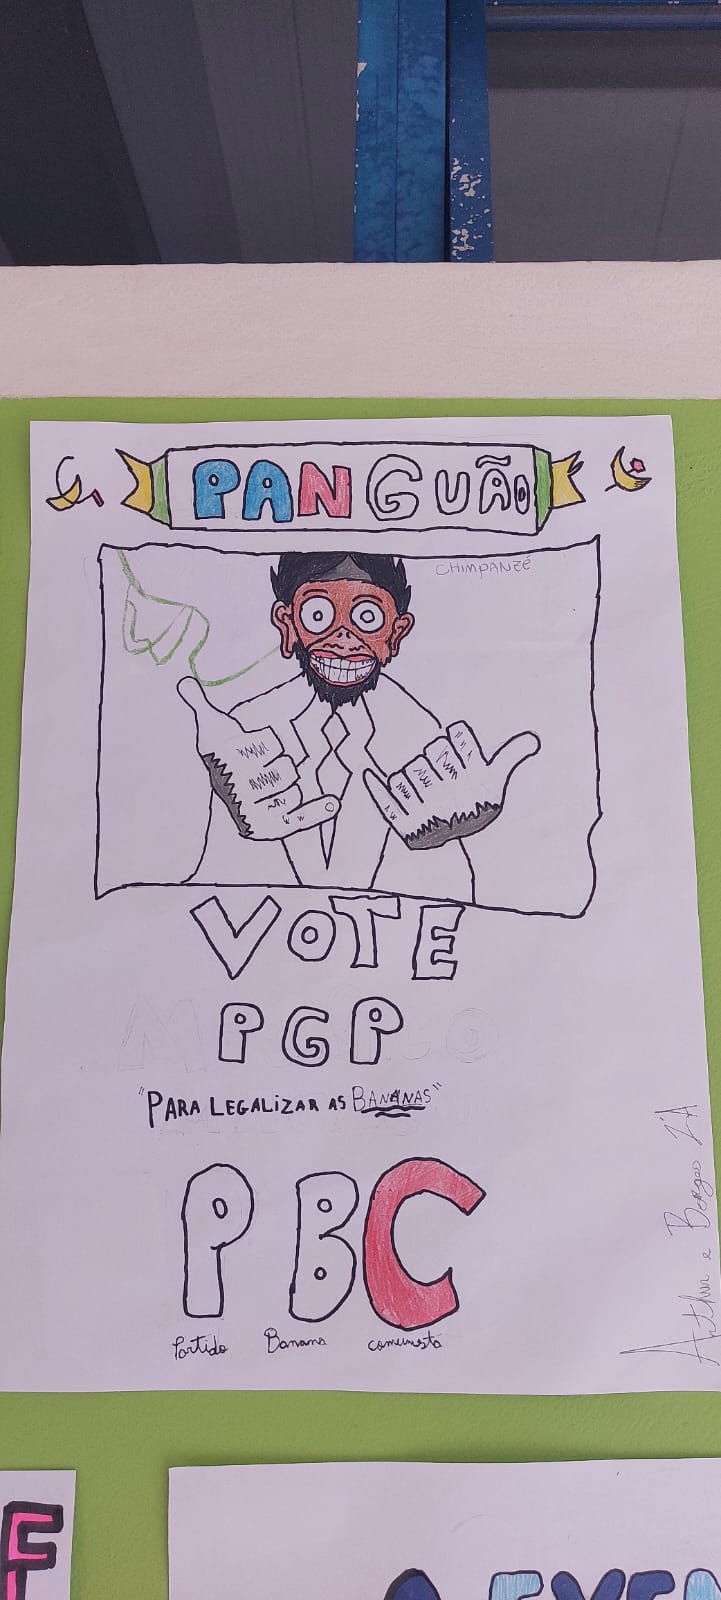 PANGUÃO
CHIMPANZÉ
VOTE
PGP
"PARA LEGALIZAR AS BANANAS"
PBC
Partido Banana comunista
Arthur e Borges 2ºA